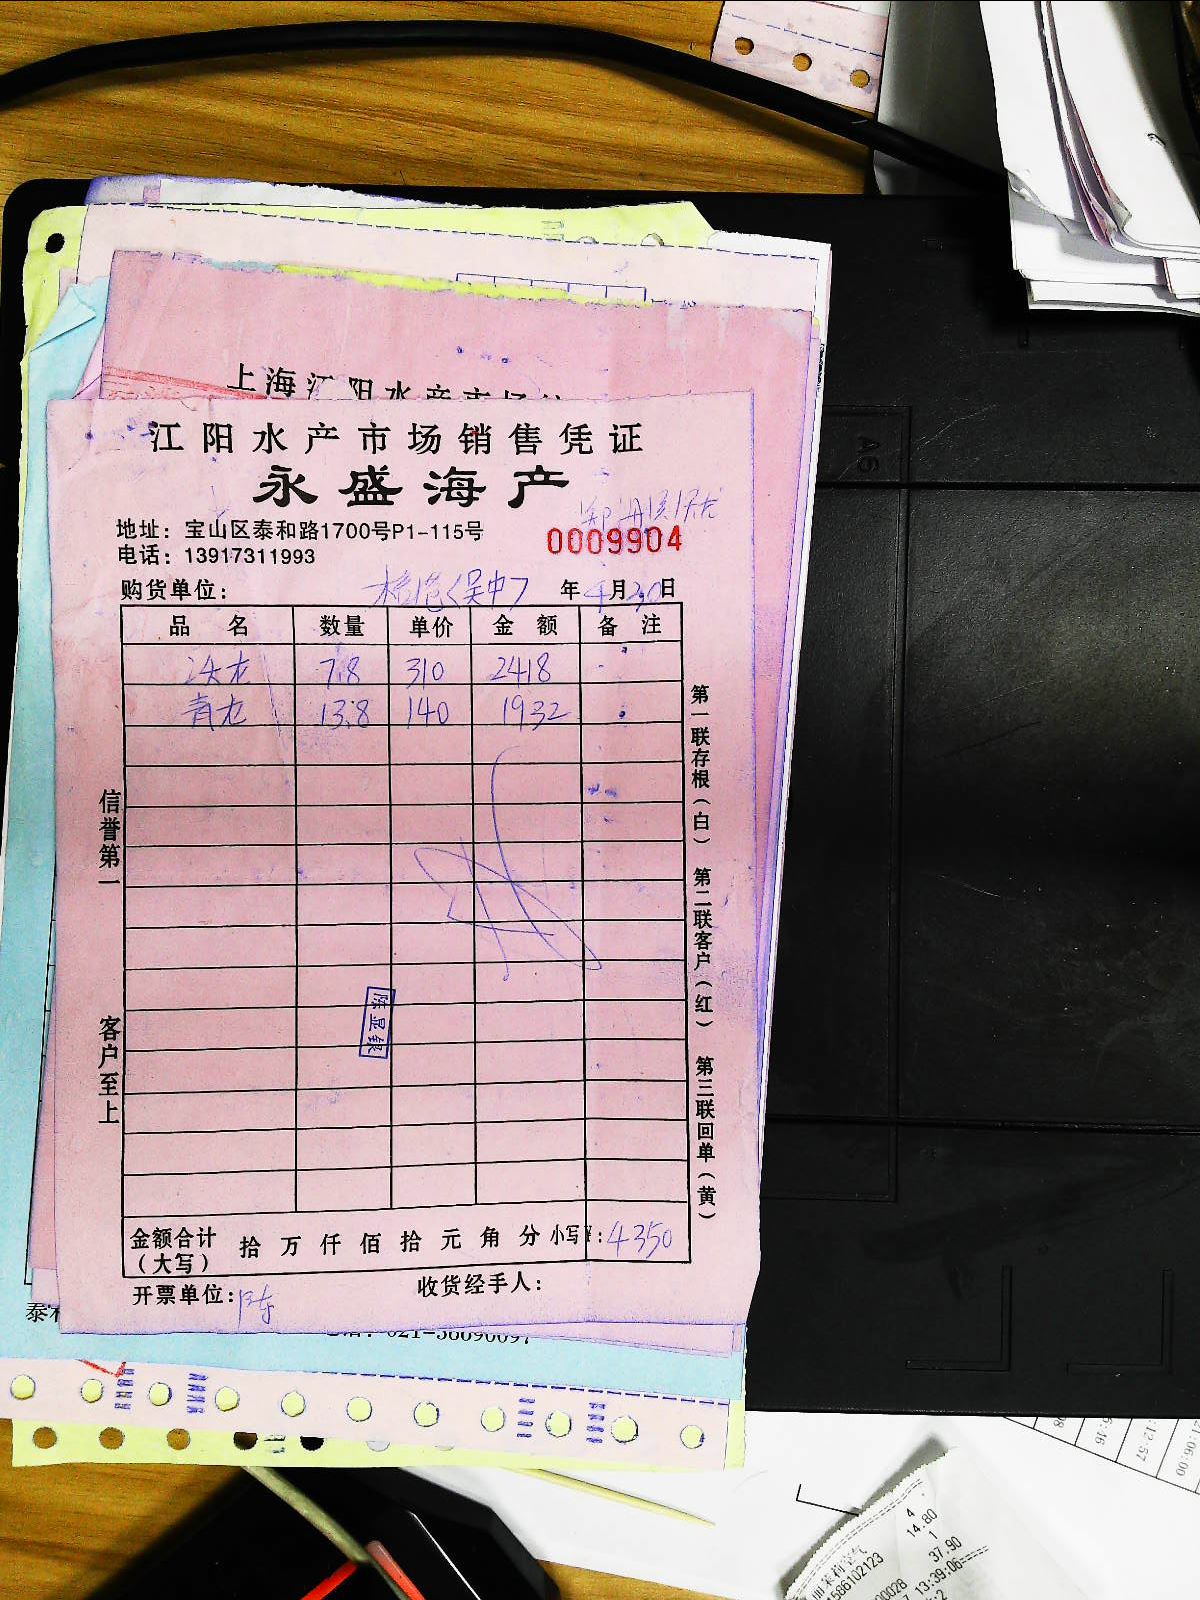 上海江阳水产市场
江阳水产市场销售凭证
永盛海产
地址：宝山区泰和路1700号P1-115号
电话：13917311993
0009904
购货单位： 年4月20日
品名 数量 单价 金额 备注
7.8 310 2418
青龙 13.8 140 1932
信誉第一 客户至上
第一联存根（白） 第二联客户（红） 第三联回单（黄）
陈显银
金额合计（大写） 拾万仟佰拾元角分 小写¥：4350
开票单位：陈 收货经手人：
A6
4
14.80
1
37.90
13:39:06